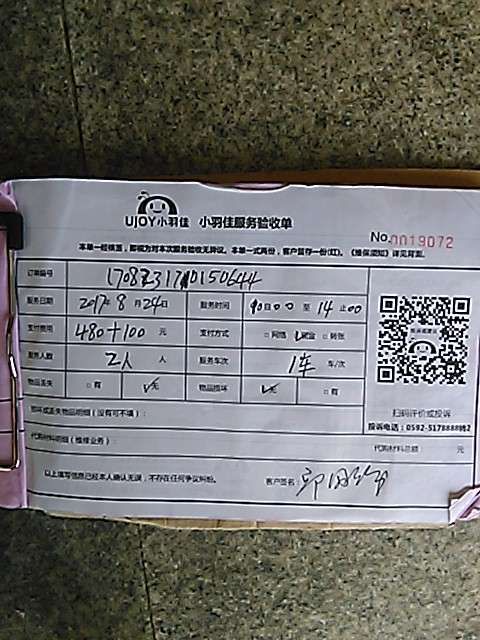 UJOY小羽佳 小羽佳服务验收单
No.0019072
本单一经核里,即视为对本次服务验收无异议。本单一式两份,客户留存一份(红)。《维保须知》详见背面。
订单编号
服务日期 2017年8月24日 服务时间 10:00 至 14:00
支付费用 480+100 元 支付方式 □网络 ☑现金 □转账
服务人数 2人 人 服务车次 1车 车/次
物品丢失 □有 ☑无 物品损坏 ☑无 □有
损坏或丢失物品明细(没有可不填):
扫码评价或投诉
投诉电话:0592-5178888转2
代购材料明细(维修业务): 代购材料总额: 元
以上填写信息已经本人确认无误,不存在任何争议纠纷。 客户签名: